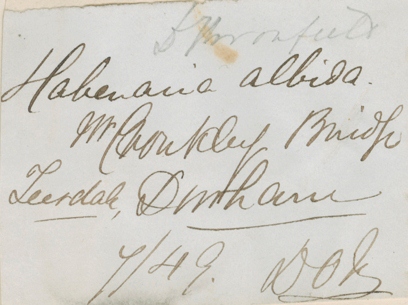 Habenaria albida.
Nr Cronkley Bridge
Teesdale, Durham
7/49. D O